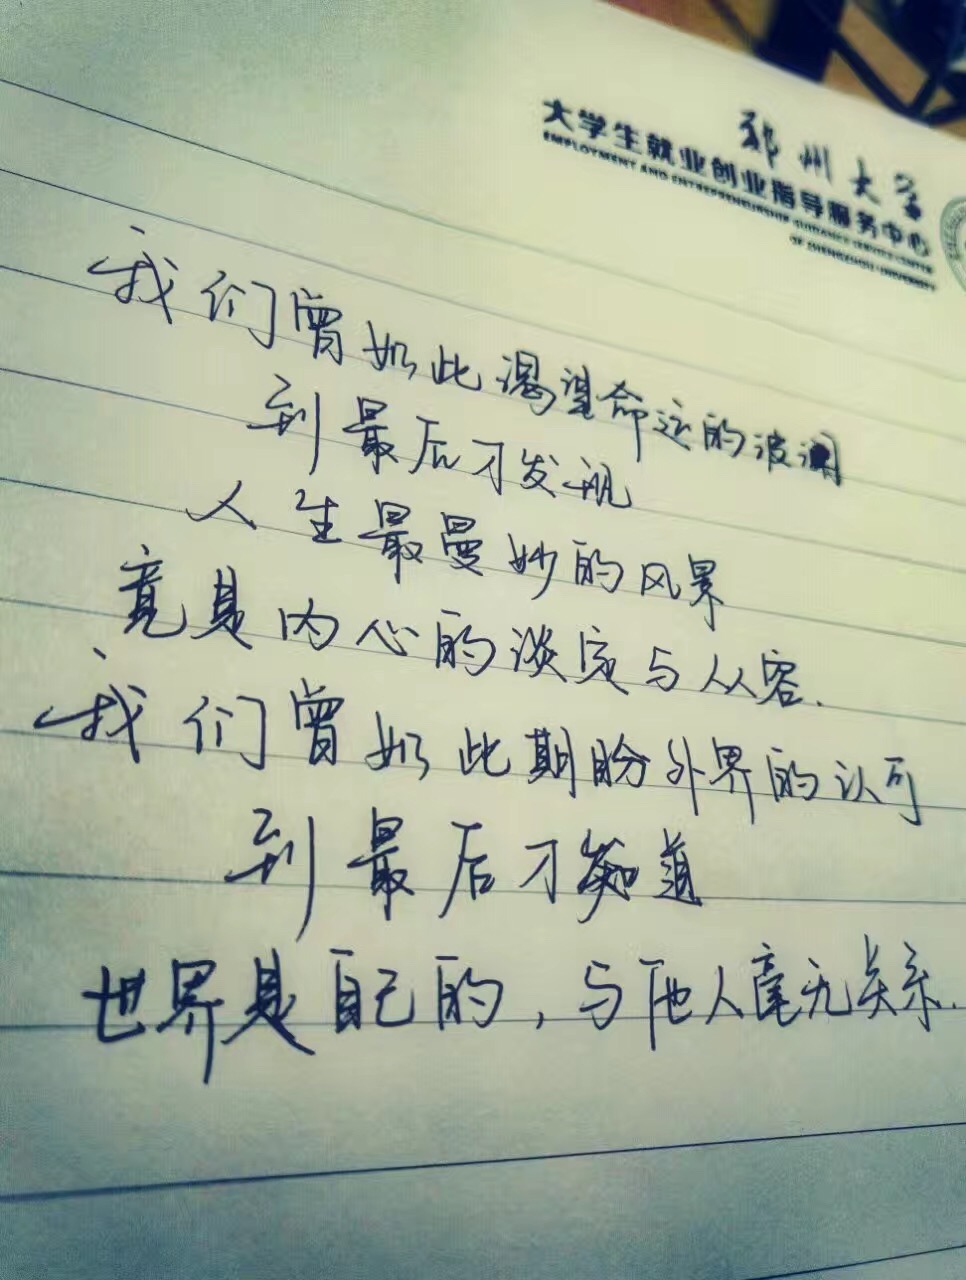 郑州大学
大学生就业创业指导服务中心
EMPLOYMENT AND ENTREPRENEURSHIP GUIDANCE SERVICE CENTER
OF ZHENGZHOU UNIVERSITY
我们曾如此渴望命运的波澜
到最后才发现
人生最曼妙的风景
竟是内心的淡定与从容.
我们曾如此期盼外界的认可
到最后才知道
世界是自己的,与他人毫无关系.